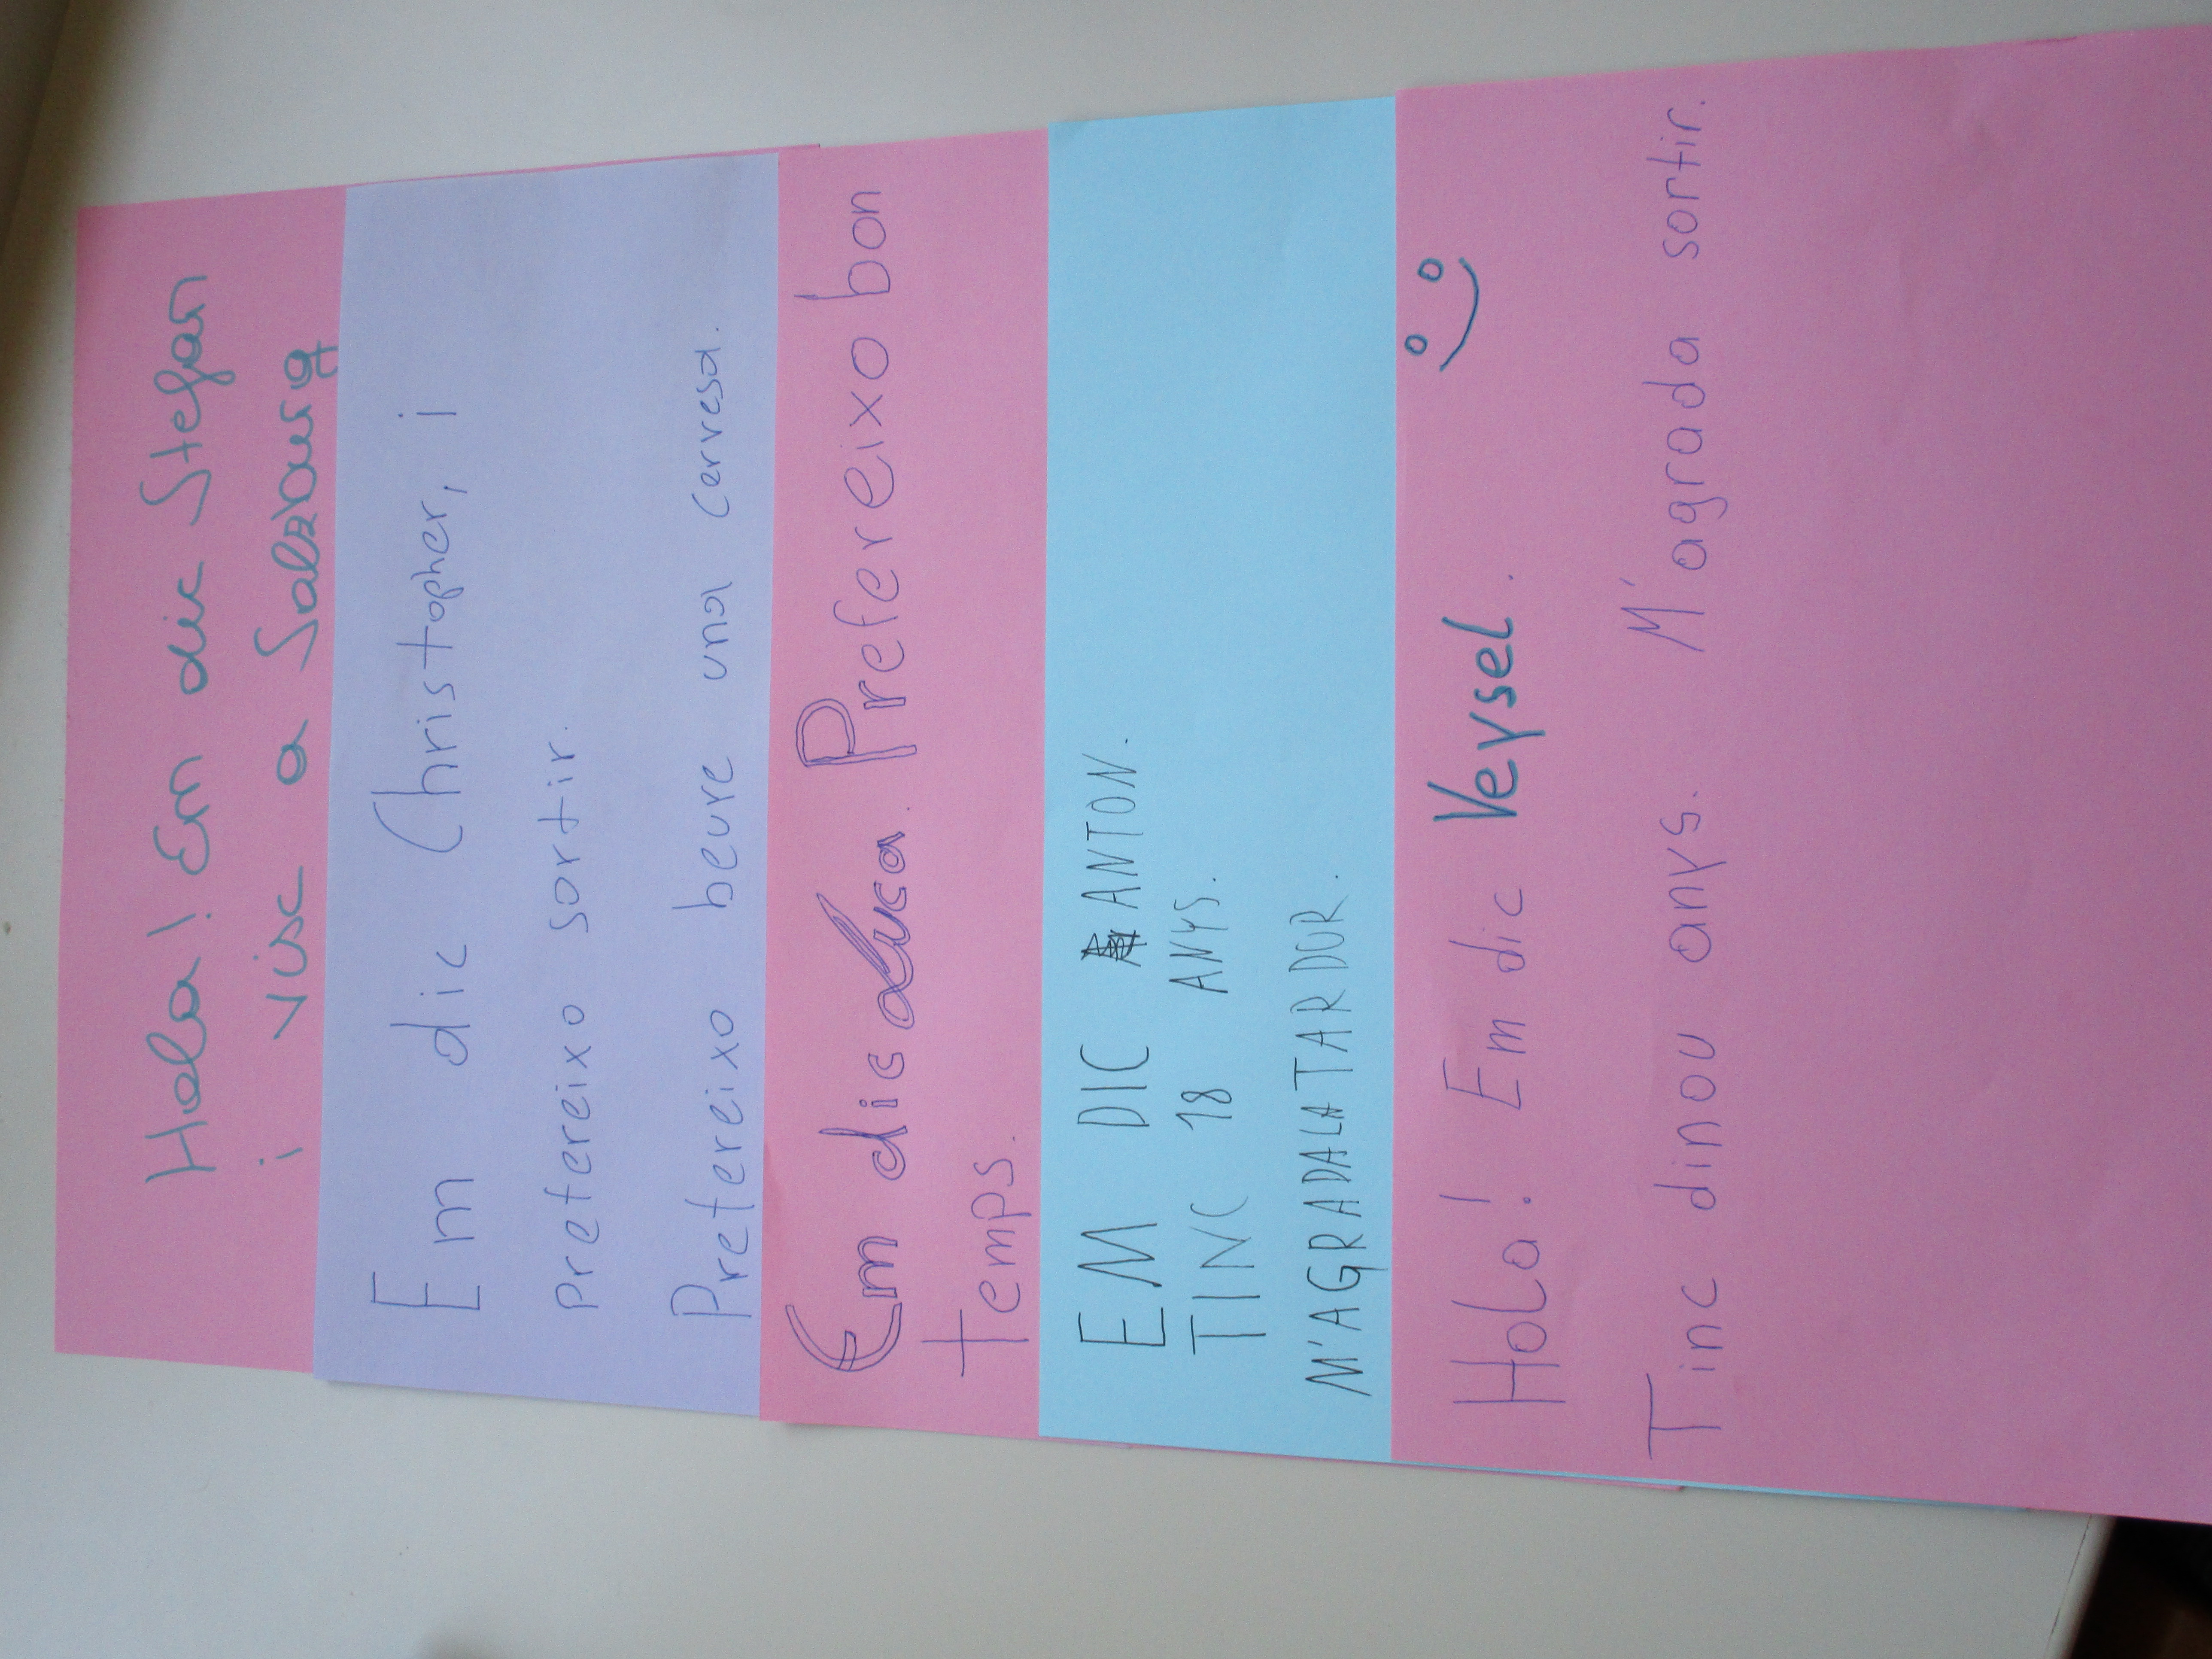 Hola! Em dic Stefan
i visc a Salzburg
Em dic Christopher, i
prefereixo sortir.
Prefereixo beure una cervesa.
Em dic Luca. Prefereixo bon
temps.
EM DIC ANTON.
TINC 18 ANYS.
M'AGRADA LA TARDOR.
Hola! Em dic Veysel.
Tinc dinou anys. M'agrada sortir.